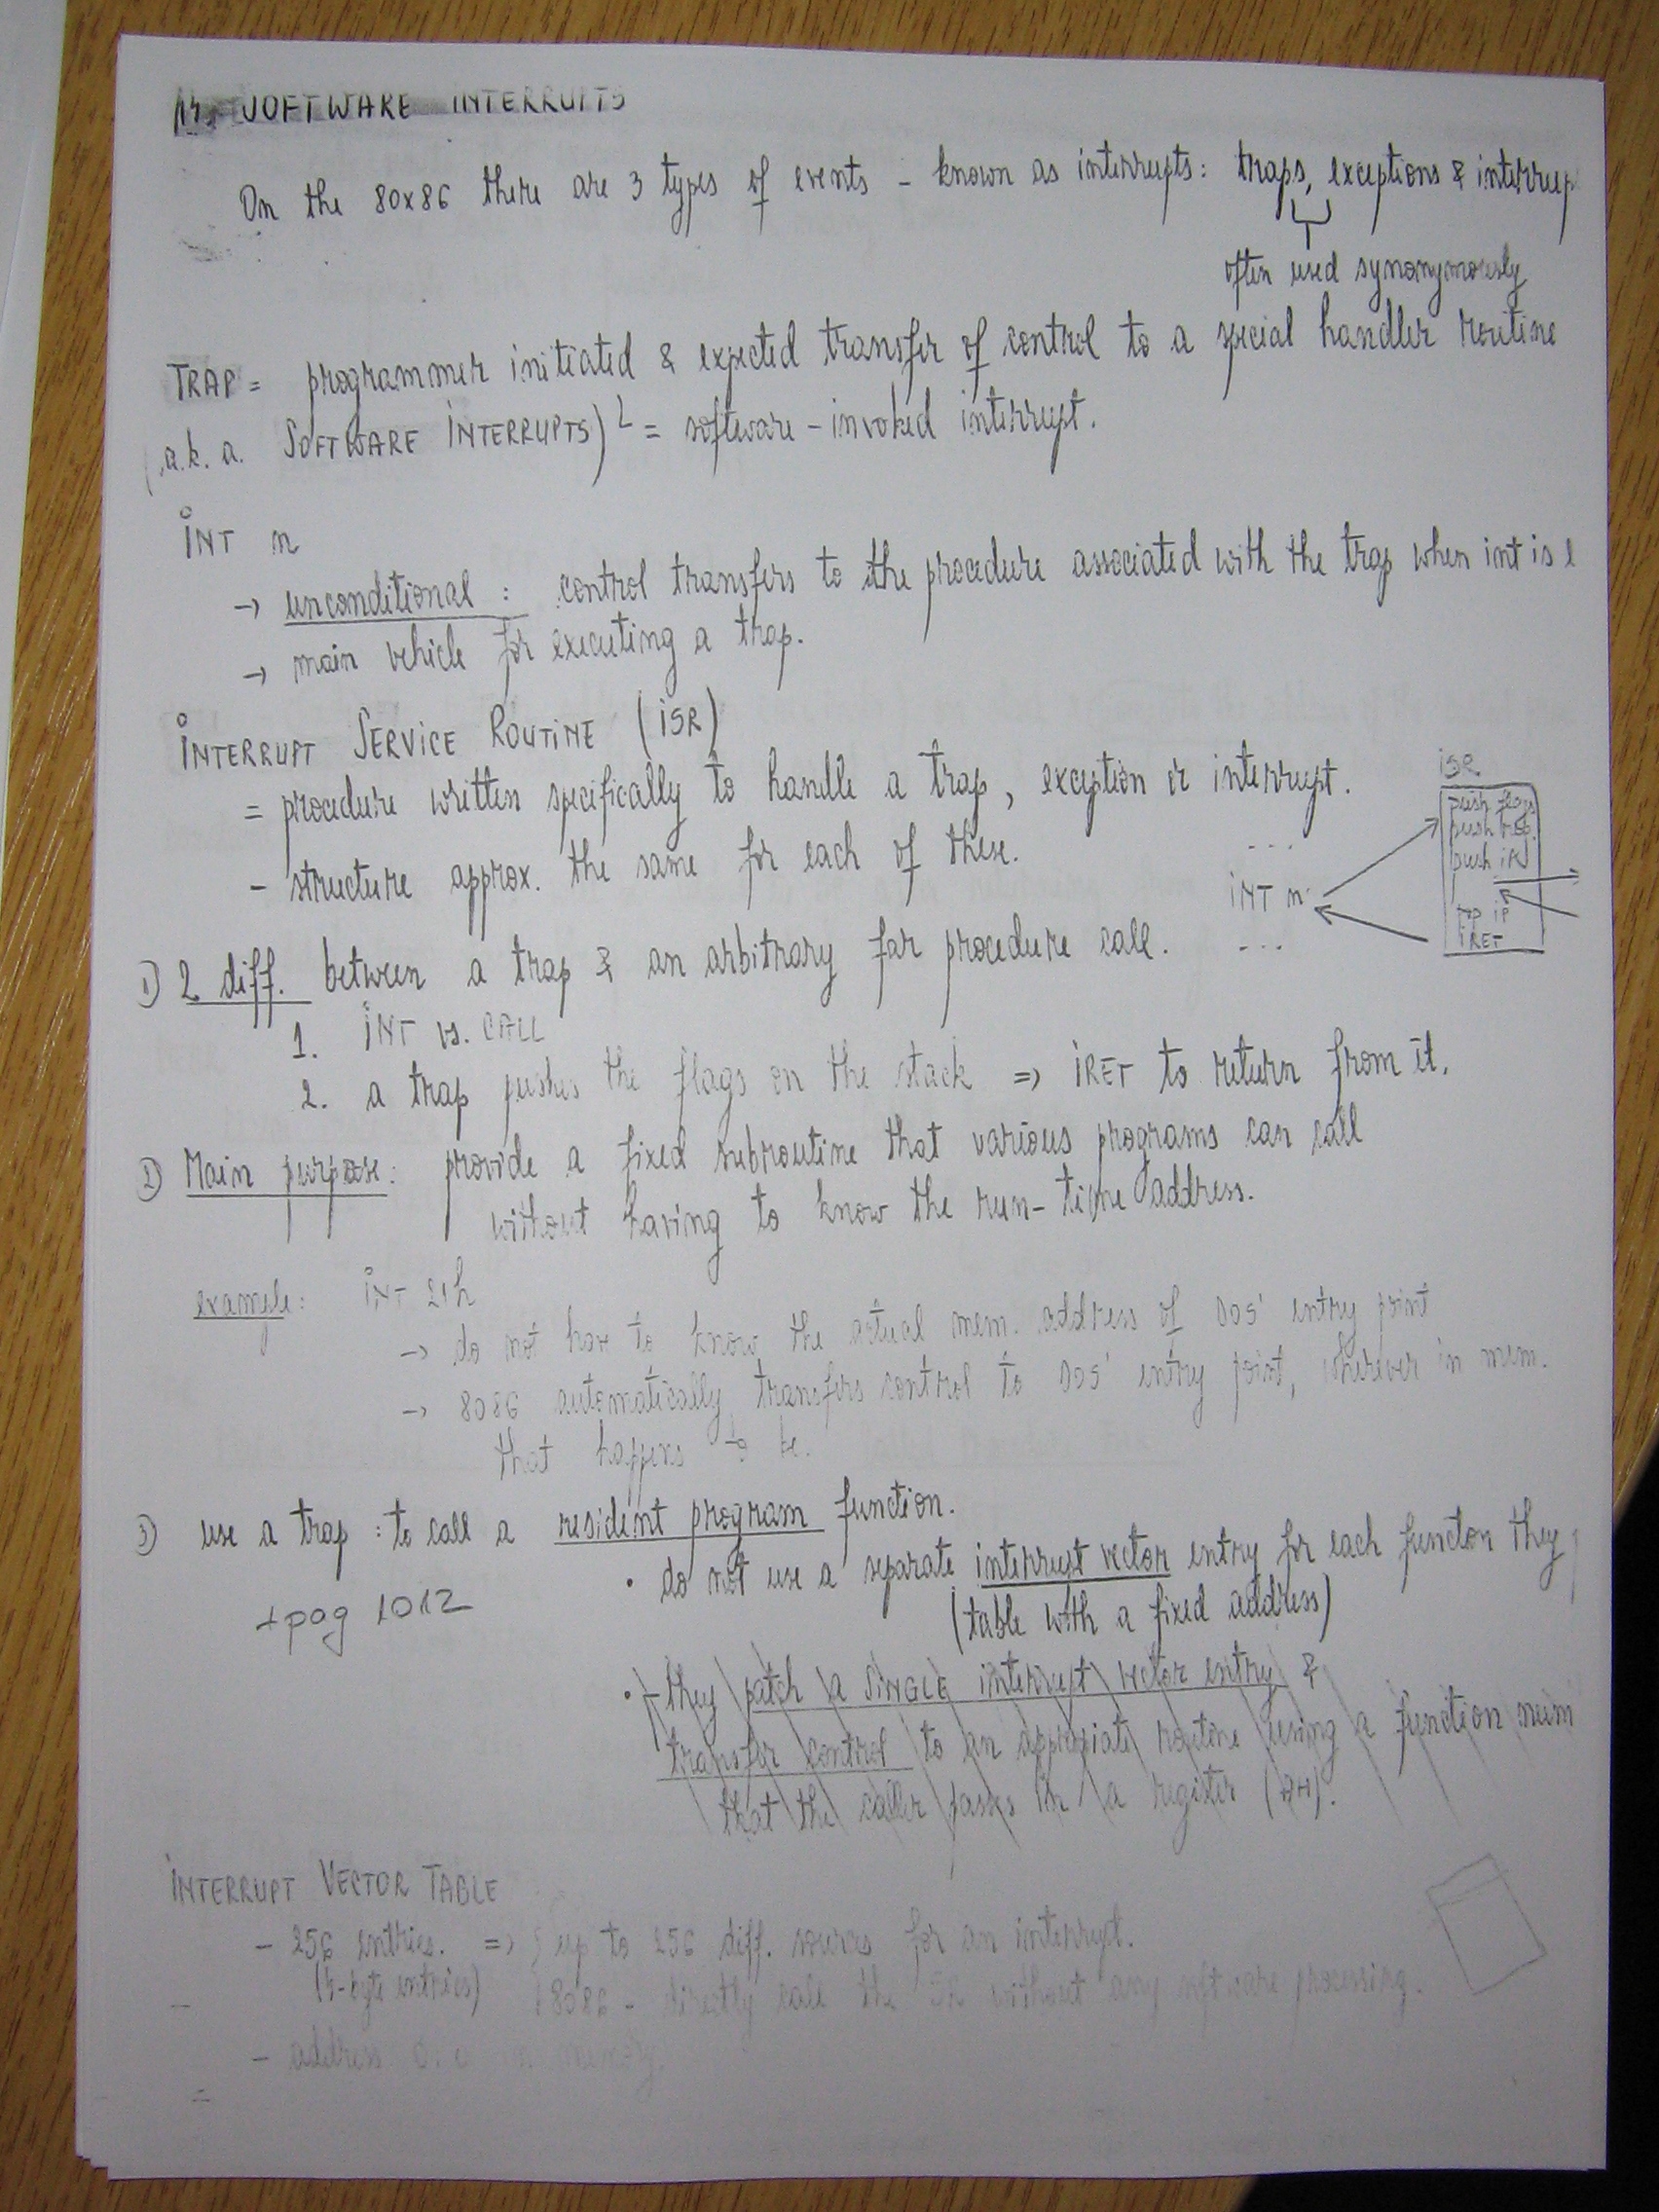 14. SOFTWARE INTERRUPTS
On the 80x86 there are 3 types of events - known as interrupts: traps, exceptions & interrup
often used synonymously
TRAP = programmer initiated & expected transfer of control to a special handler routine
(a.k.a. SOFTWARE INTERRUPTS) = software-invoked interrupt.
INT n
→ unconditional : control transfers to the procedure associated with the trap when int is
→ main vehicle for executing a trap.
INTERRUPT SERVICE ROUTINE (ISR)
= procedure written specifically to handle a trap, exception or interrupt.
- structure approx. the same for each of these.
...
INT n
...
ISR
push flags
push
push
pop ip
IRET
1) 2 diff. between a trap & an arbitrary far procedure call.
1. INT vs. CALL
2. a trap pushes the flags on the stack => IRET to return from it.
2) Main purpose: provide a fixed subroutine that various programs can call
without having to know the run-time address.
example: INT 21h
→ do not have to know the actual mem. address of DOS' entry point
→ 8086 automatically transfers control to DOS' entry point, wherever in mem.
that happens to be.
3) use a trap : to call a resident program function.
+pag 1012
• do not use a separate interrupt vector entry for each function they
(table with a fixed address)
• they patch a SINGLE interrupt vector entry &
transfer control to an appropiate routine using a function num
that the caller passes in a register (AH).
INTERRUPT VECTOR TABLE
- 256 entries. => up to 256 diff. sources for an interrupt.
(4-byte entries) 8086 - directly call the SR without any software processing.
- address 0:0 in memory.